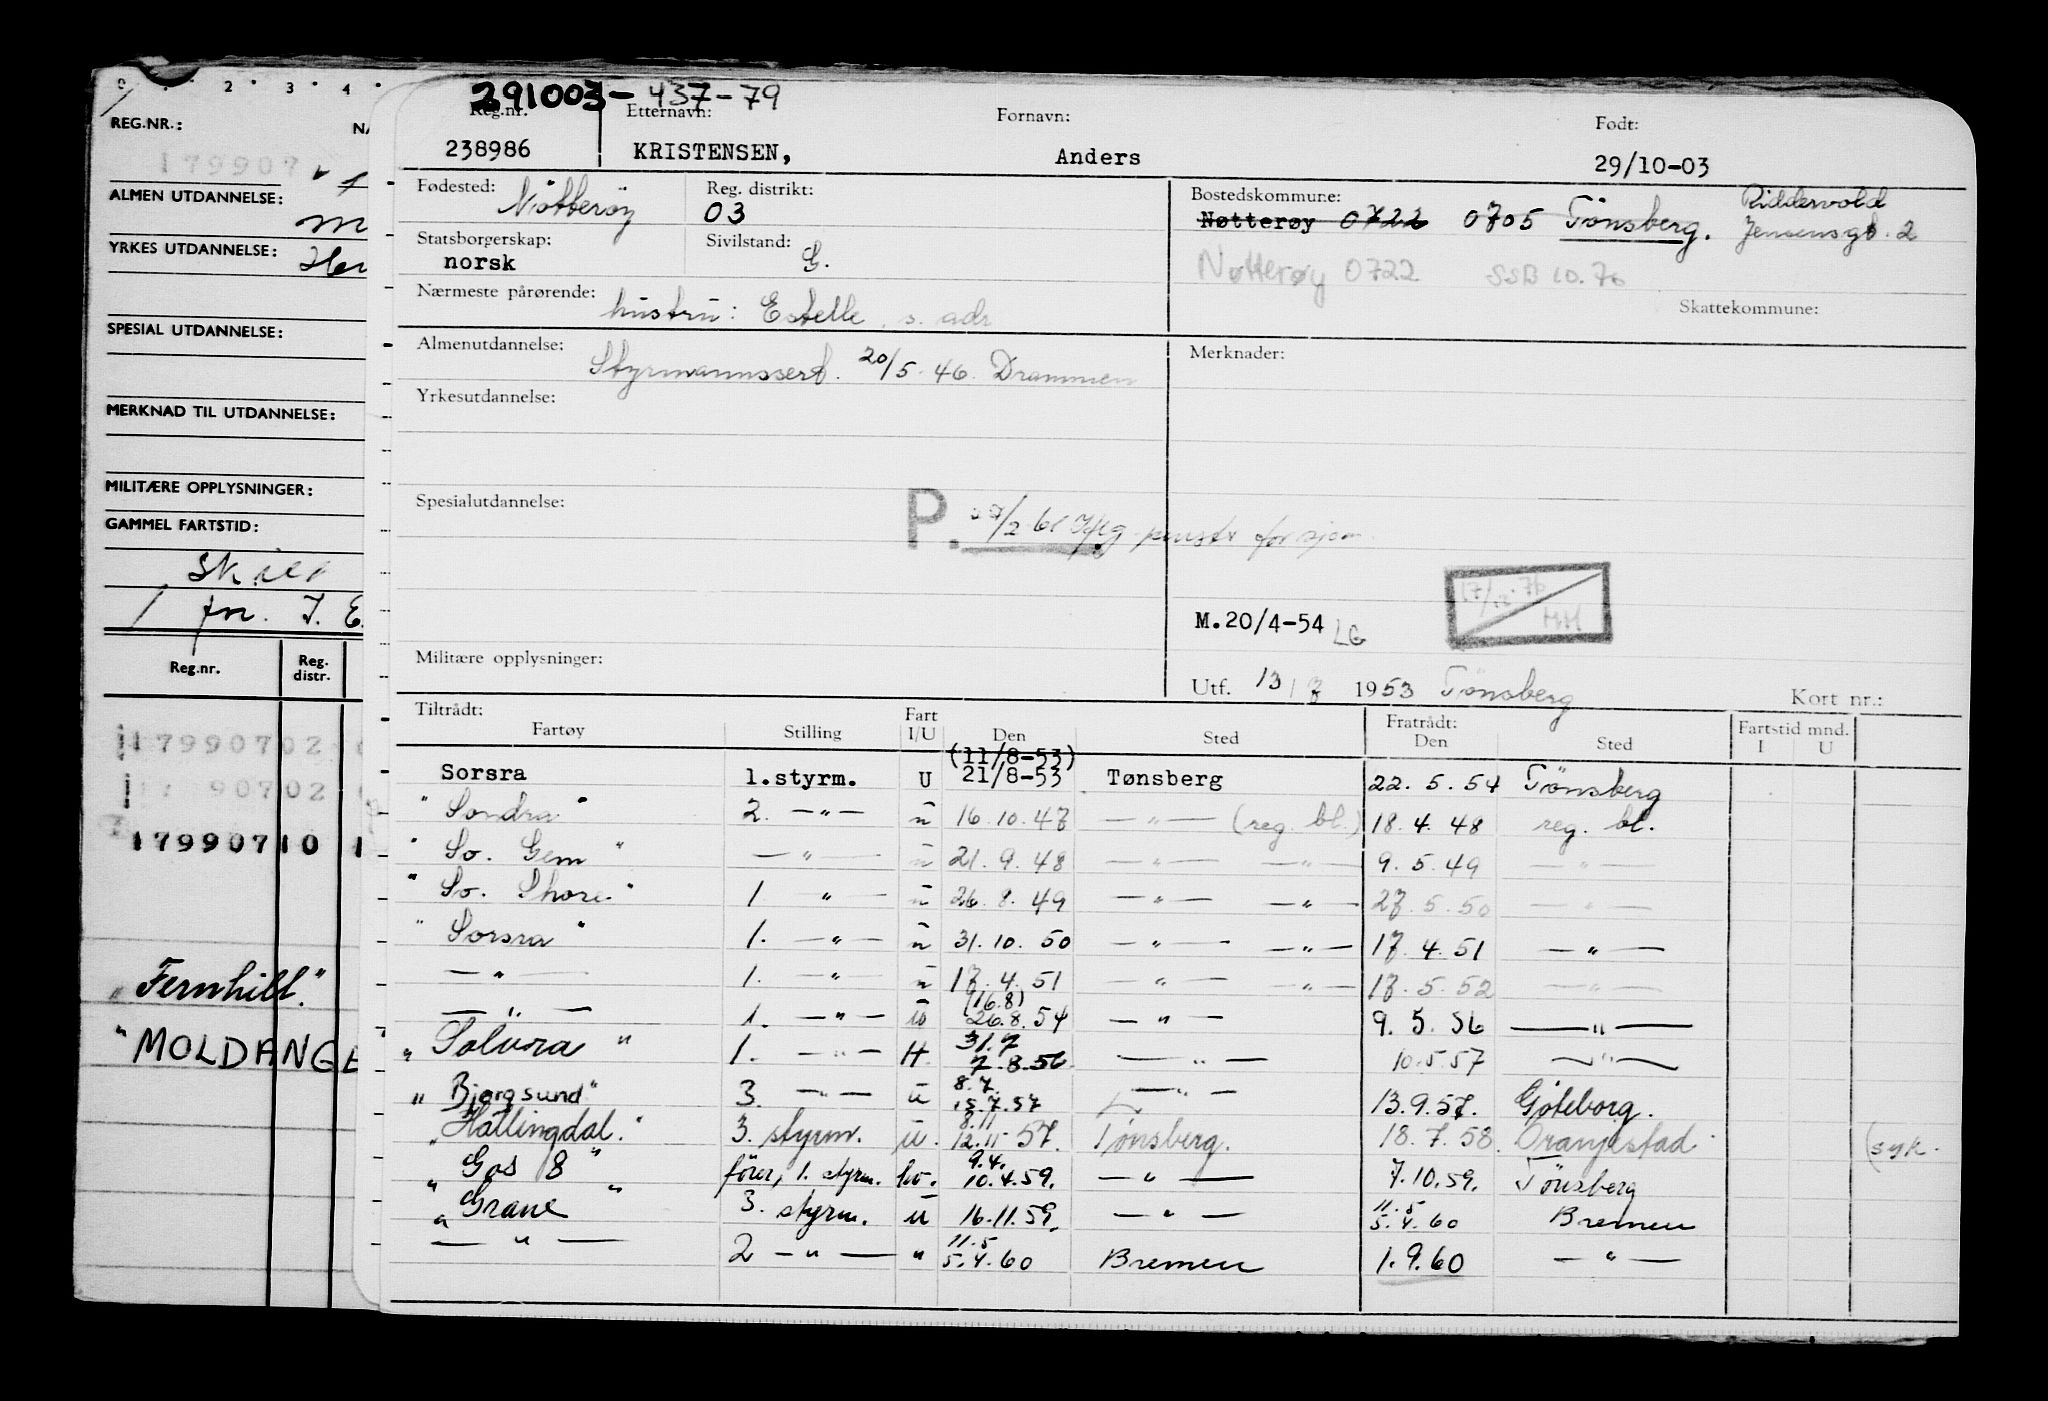 0 . 2 . 3 . 4
REG.NR.:
179907
ALMEN UTDANNELSE:
YRKES UTDANNELSE:
SPESIAL UTDANNELSE:
MERKNAD TIL UTDANNELSE:
MILITÆRE OPPLYSNINGER:
GAMMEL FARTSTID:
1 fra. J. E.
Reg.nr. Reg. distr.
17990702
90702
17990710 1
"Fernhill".
"MOLDANGE
291003-437-79
Reg.nr. Etternavn: Fornavn: Født:
238986 KRISTENSEN, Anders 29/10-03
Fødested: Nøtterøy Reg. distrikt: 03
Bostedskommune: Nøtterøy 0722 0705 Tönsberg. Riddervold Jensensgt. 2
Statsborgerskap: norsk Sivilstand: G.
Nøtterøy 0722 SSB 10.76
Nærmeste pårørende: hustru: Estelle, s. adr
Skattekommune:
Almenutdannelse: Styrmannssert. 20/5-46 Drammen
Merknader:
Yrkesutdannelse:
Spesialutdannelse: P.
M.20/4-54 LG
17/12-76 HH
Militære opplysninger:
Utf. 13/7 1953 Tönsberg Kort nr.:
Tiltrådt: Fratrådt: Fartstid mnd.
Fartøy Stilling Fart I/U Den Sted Den Sted I U
Sorsra 1.styrm. U (11/8-53) 21/8-53 Tønsberg 22.5.54 Tönsberg
"Sondra" 2. —"— u 16.10.47 —"— (reg. bl.) 18.4.48 reg. bl.
"So. Gem" —"— u 21.9.48 —"— —"— 9.5.49 —"—
"So. Shore" 1 —"— u 26.8.49 —"— —"— 27.5.50 —"—
"Sorsra" 1. —"— u 31.10.50 —"— —"— 17.4.51 —"—
—"— 1. —"— u 17.4.51 —"— —"— 17.5.52 —"—
—"— 1. —"— u (16.8) 26.8.54 —"— 9.5.56 —"—
"Solvra" 1. —"— H 31.7 7.8.56 —"— 10.5.57 —"—
"Bjorgsund" 3. —"— u 8.7. 15.7.57 —"— 13.9.57. Göteborg.
"Hallingdal." 3. styrm. u. 8.11 12.11-57. Tønsberg. 18.7.58 Oranjestad (syk.
"Gos 8" förer, 1. styrm. hv. 9.4. 10.4.59. —"— 7.10.59. Tönsberg
"Grane" 3. styrm. u 16.11.59. —"— 11.5 5.4.60 Bremen
—"— 2 —"— " 11.5 5.4.60 Bremen 1.9.60 —"—